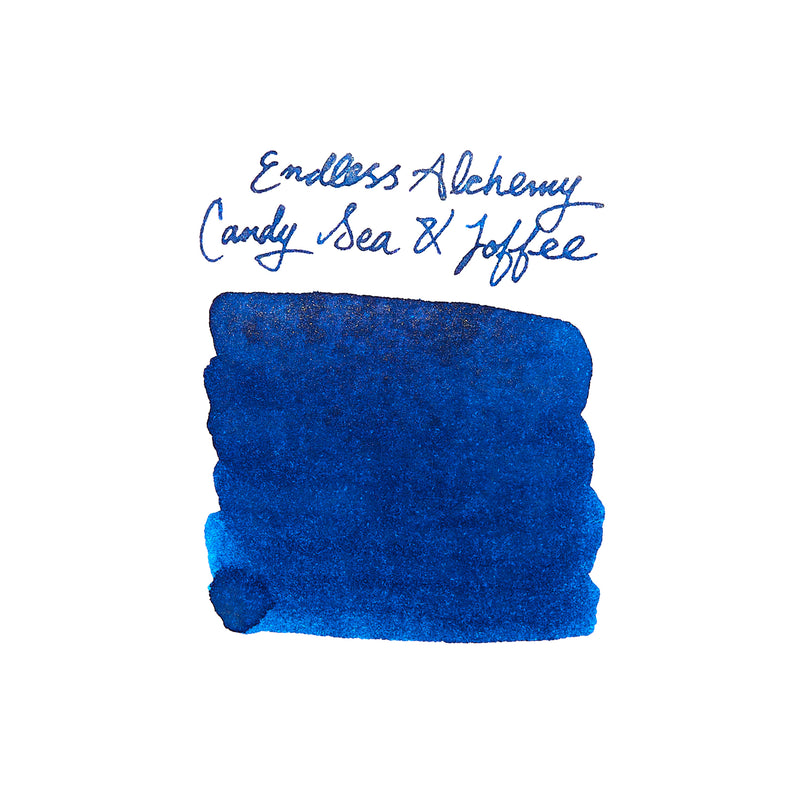 Endless Alchemy
Candy Sea & Toffee